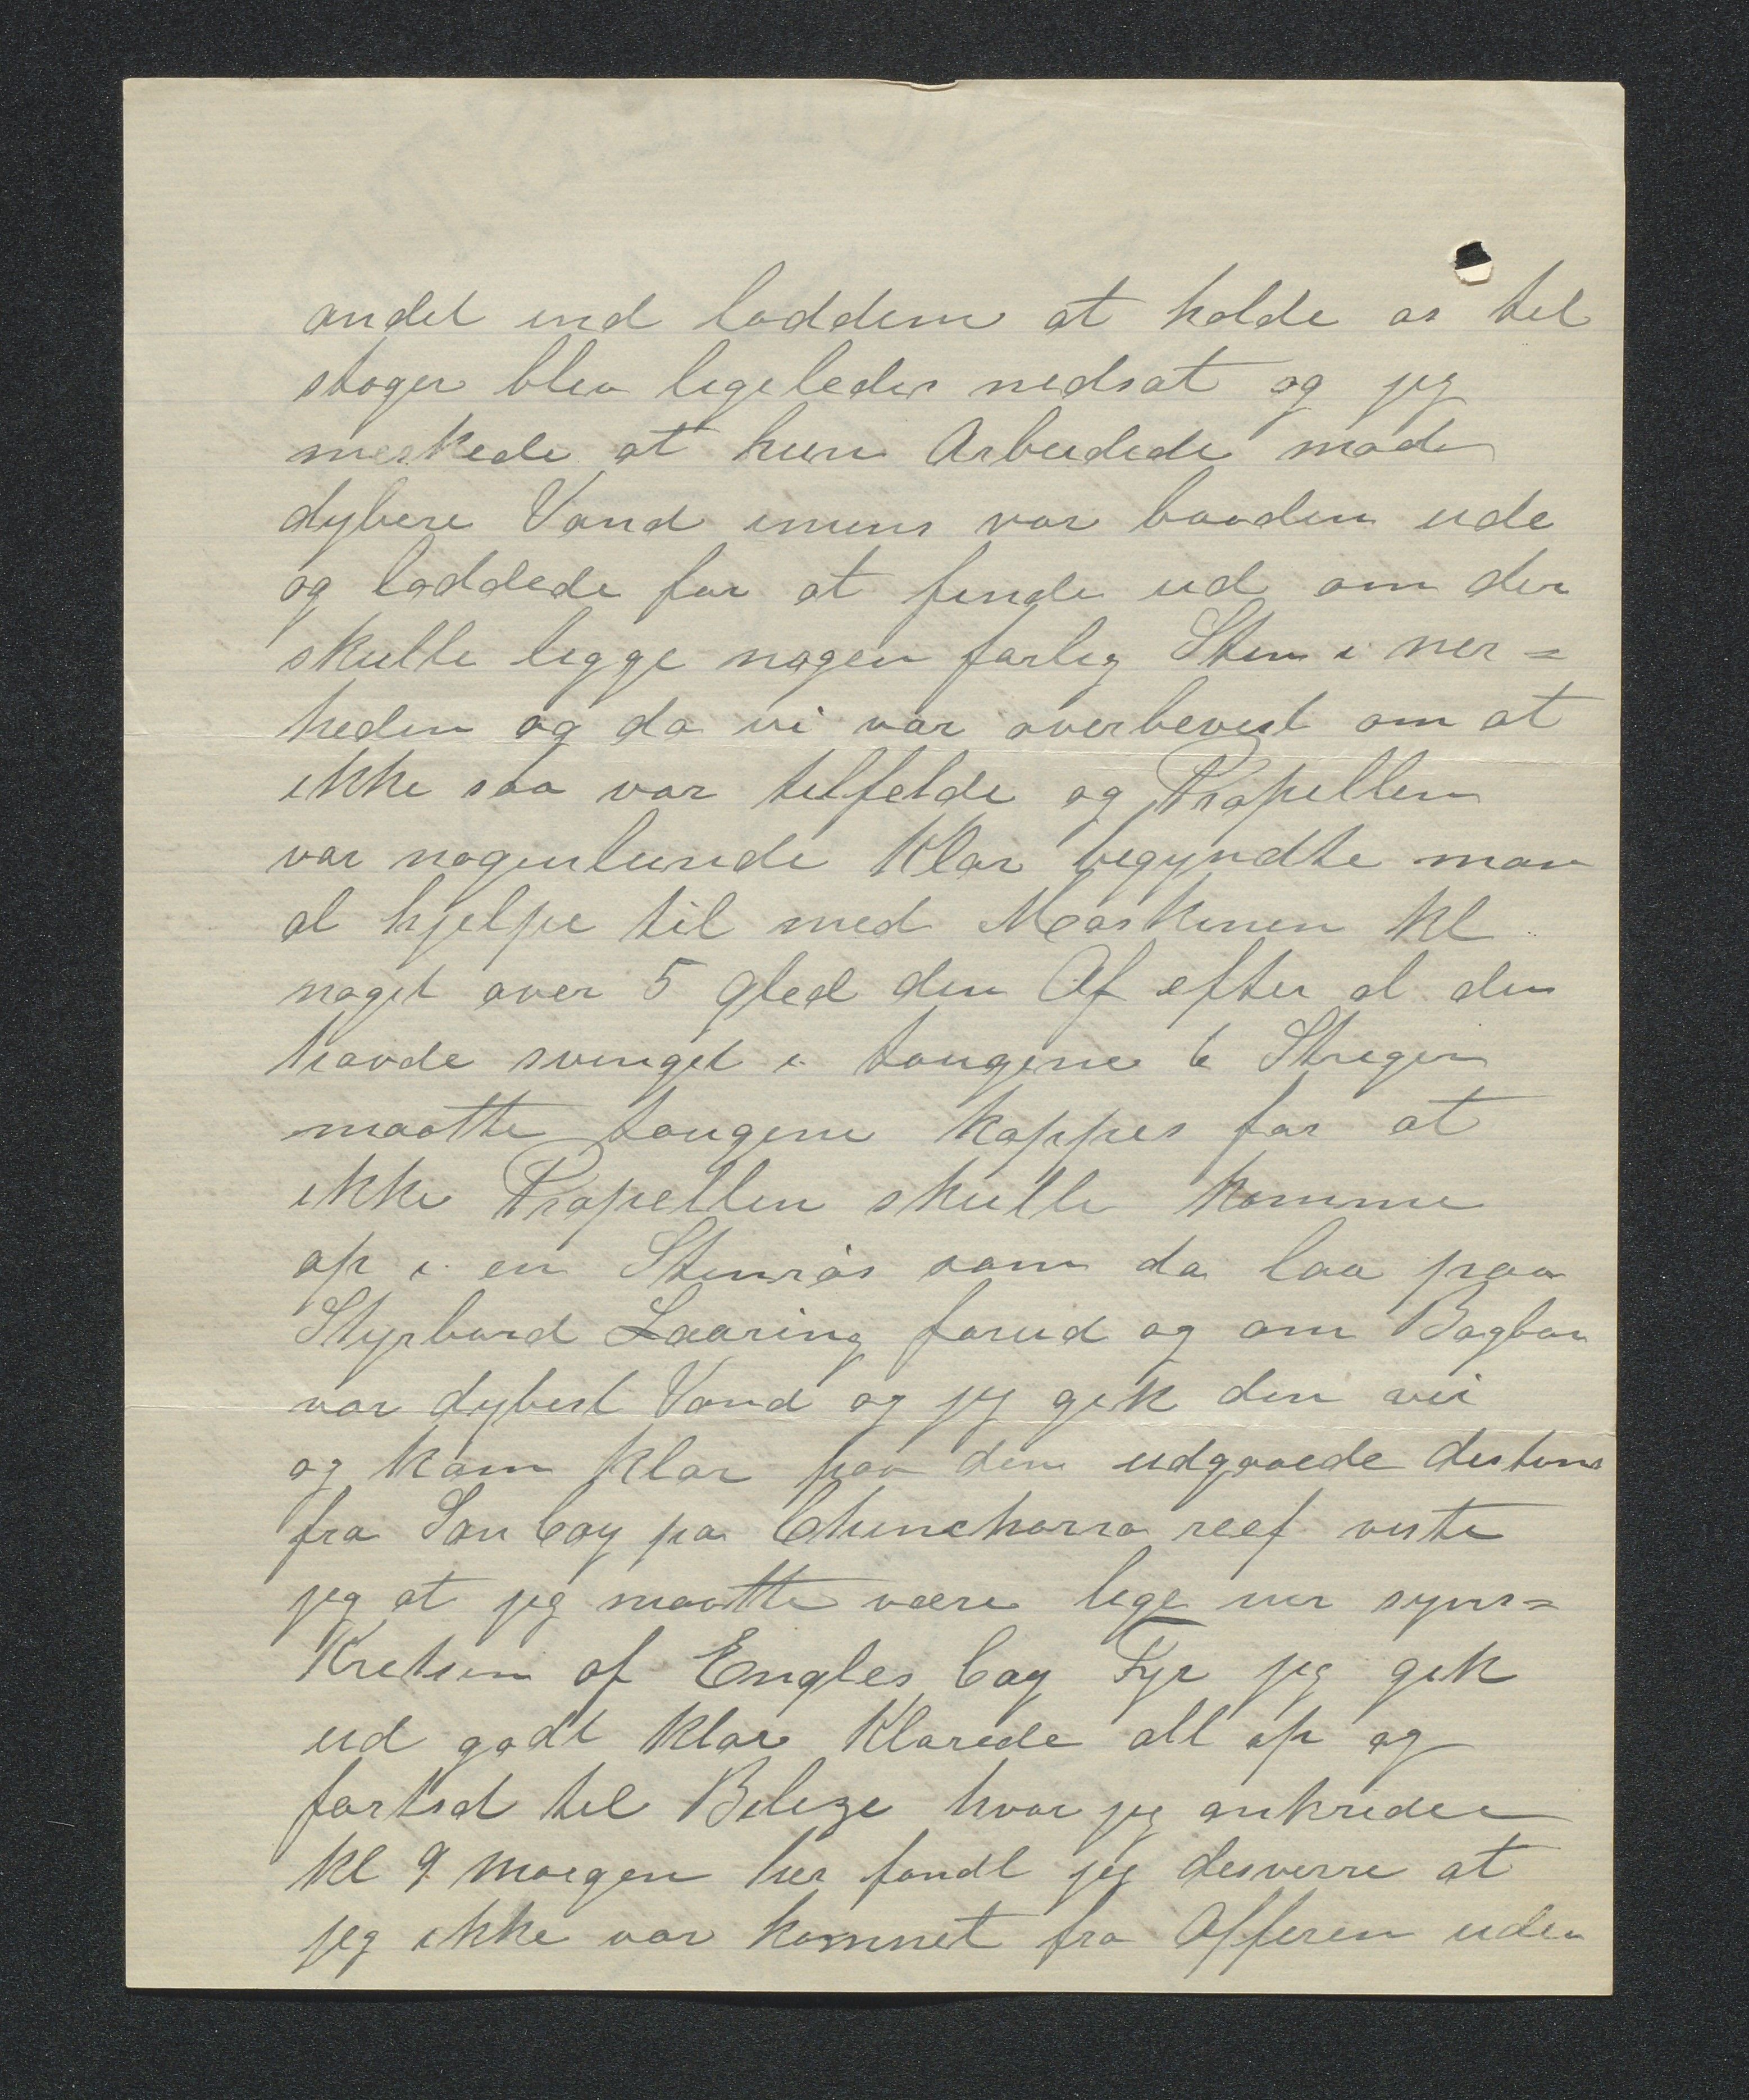 andet end loddene at holde os til
stager blev ligeledes nedsat og jeg
merkede at hun Arbeidede mod
dybere Vand imens var baaden ude
og loddede for at finde ud om der
skulle ligge nogen farlig Sten i ner=
heden og da vi var overbevist om at
ikke saa var tilfelde og Propellen
var nogenlunde klar begyndte man
at hjelpe til med Maskinen kl
noget over 5 gled den Af efter at den
havde svinget i tougene 6 Streger
maatte tougene kappes for at
ikke Propellen skulle komme
op i en Stenrøs som da laa paa
Styrbord Laaring forud og om Bagbor
var dybest Vand og jeg gik den vei
og kom klar paa den udgaaede distans
fra San Cay pa Chincharra reef viste
jeg at jeg maatte være lige ner syns=
Kretsen af Engles Cay Fyr jeg gik
ud godt klar Klarede alt op og
fortsd til Belize hvor jeg ankrede
kl 9 morgen her fandt jeg desverre at
jeg ikke var kommet fra Afferen uden